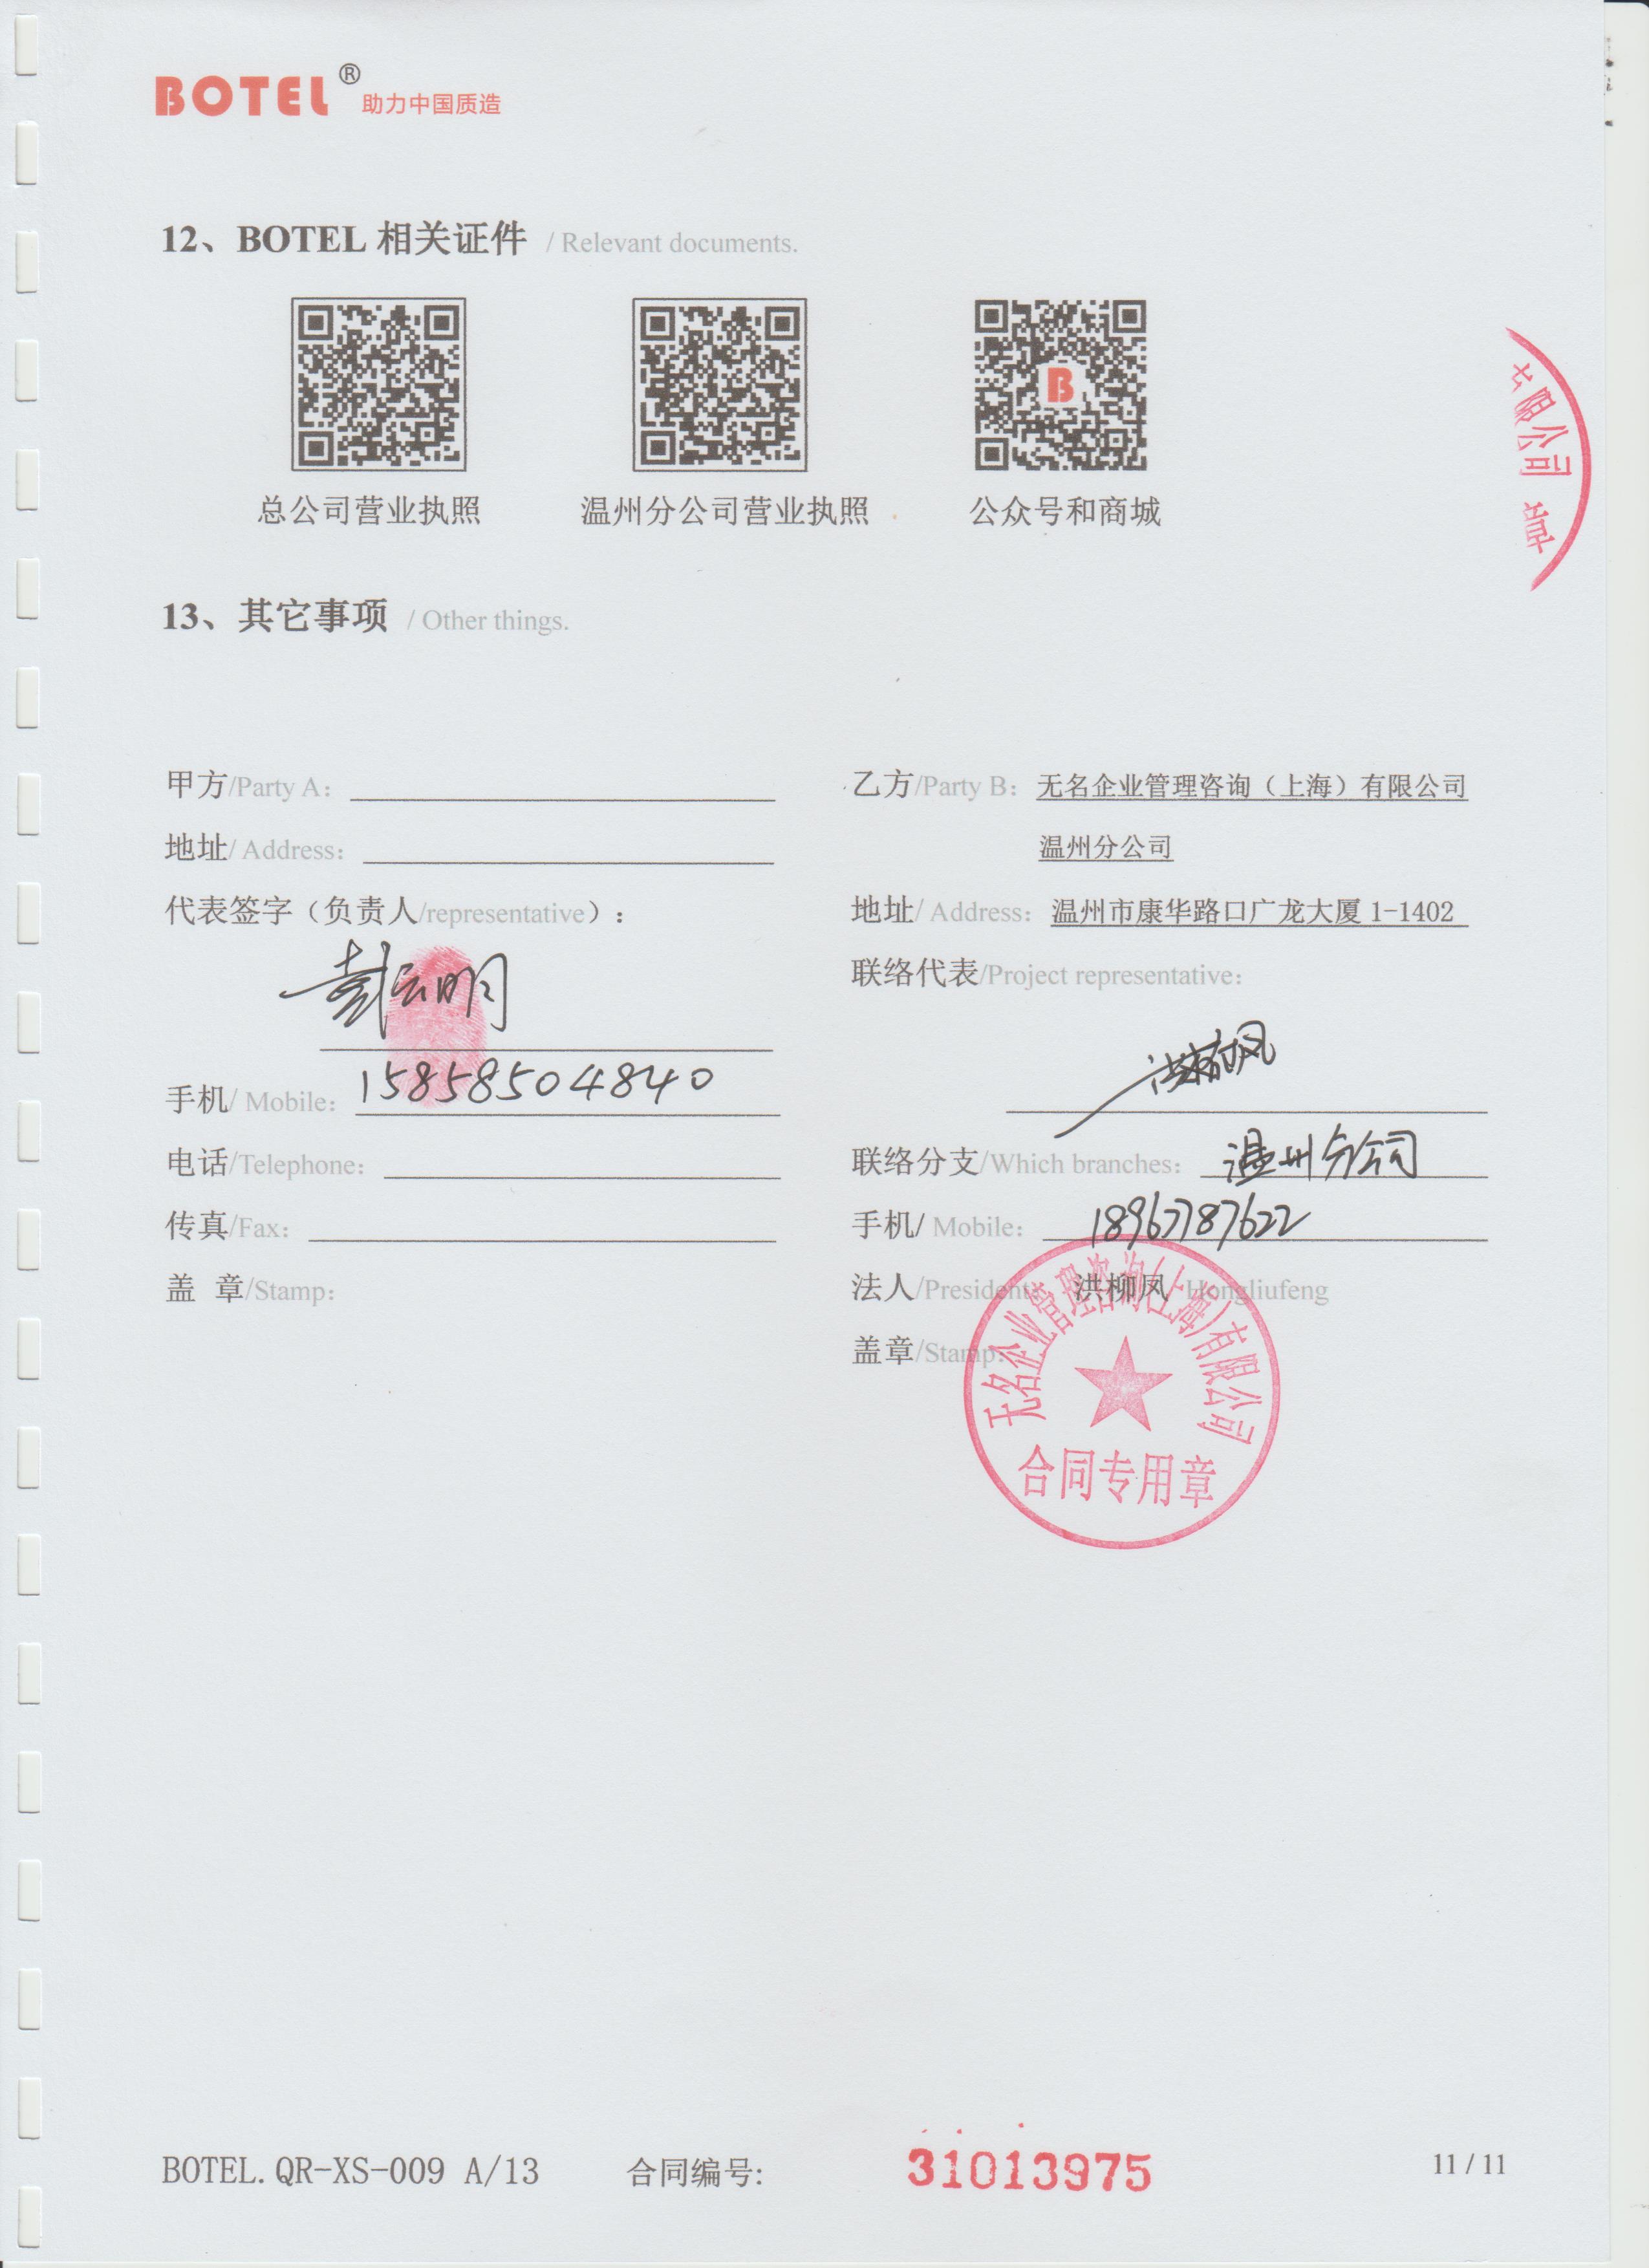 BOTEL® 助力中国质造
12、BOTEL 相关证件 / Relevant documents.
B
总公司营业执照 温州分公司营业执照 公众号和商城
限公司
章
13、其它事项 / Other things.
甲方/Party A：
地址/ Address：
代表签字（负责人/representative）：
彭云明
手机/ Mobile： 15858504840
电话/Telephone：
传真/Fax：
盖 章/Stamp：
乙方/Party B： 无名企业管理咨询（上海）有限公司
温州分公司
地址/ Address： 温州市康华路口广龙大厦 1-1402
联络代表/Project representative：
洪柳凤
联络分支/Which branches： 温州分公司
手机/ Mobile： 18967787622
法人/President： 洪柳凤 Hongliufeng
盖章/Stamp：
无名企业管理咨询(上海)有限公司
合同专用章
BOTEL.QR-XS-009 A/13 合同编号: 31013975 11 / 11